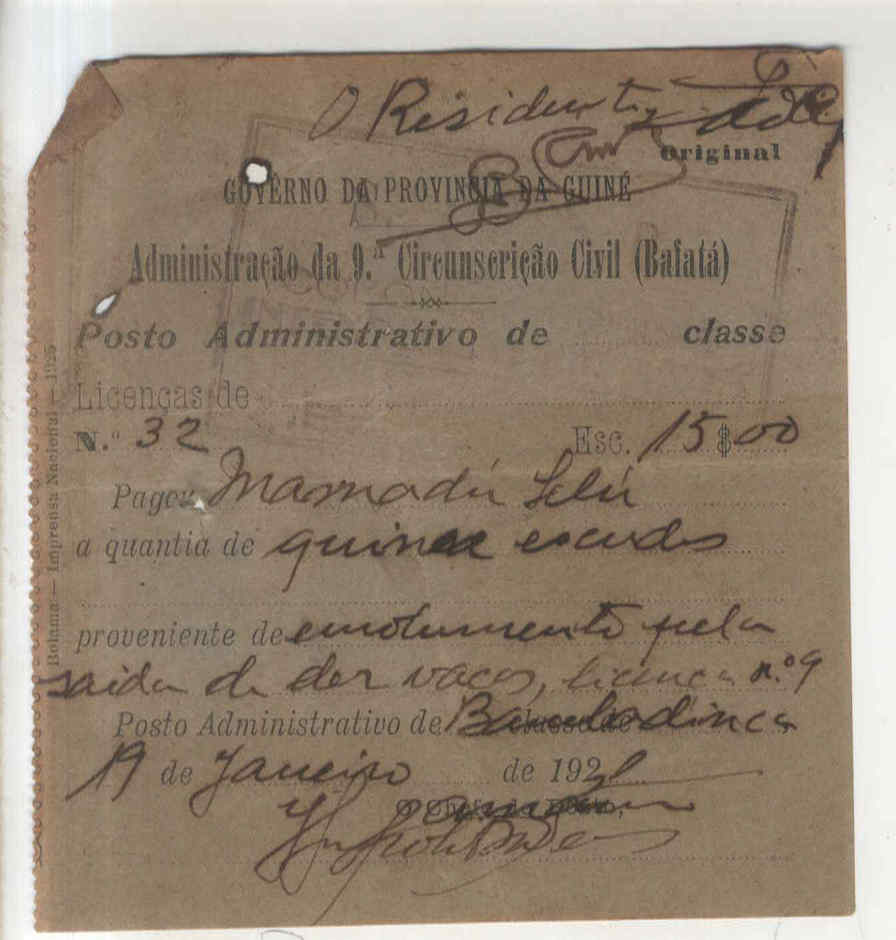 O Residente
Original
GOVERNO DA PROVINCIA DA GUINÉ
Administração da 9.ª Circunscrição Civil (Bafatá)
Posto Administrativo de classe
Licenças de
N.º 32 Esc. 15$00
Pagou Mamadú Selú
a quantia de quinze escudos
proveniente de emolumento pela
saida de dez vacas, licença n.º 9
Posto Administrativo de Bambadinca
19 de Janeiro de 192
Bolama — Imprensa Nacional — 1925